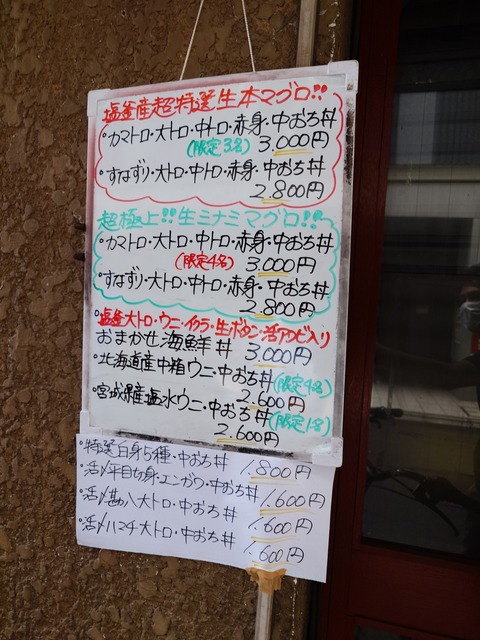 塩釜産超特選生本マグロ!!
°カマトロ・大トロ・中トロ・赤身・中おち丼
(限定3名) 3,000円
°すなずり・大トロ・中トロ・赤身・中おち丼
2.800円
超極上!!生ミナミマグロ!!
°カマトロ・大トロ・中トロ・赤身・中おち丼
(限定4名) 3,000円
°すなずり・大トロ・中トロ・赤身・中おち丼
2.800円
°塩釜大トロ・ウニ・イクラ・生ボタン・活アワビ入り
おまかせ海鮮丼 3,000円
°北海道産中箱ウニ・中おち丼(限定4名)
2.600円
°宮城県産塩水ウニ・中おち丼(限定1名)
2.600円
°特選白身5種・中おち丼 1.800円
°活〆平目切身・エンガワ・中おち丼 1.600円
°活〆勘八大トロ・中おち丼 1.600円
°活〆ハマチ大トロ・中おち丼 1.600円